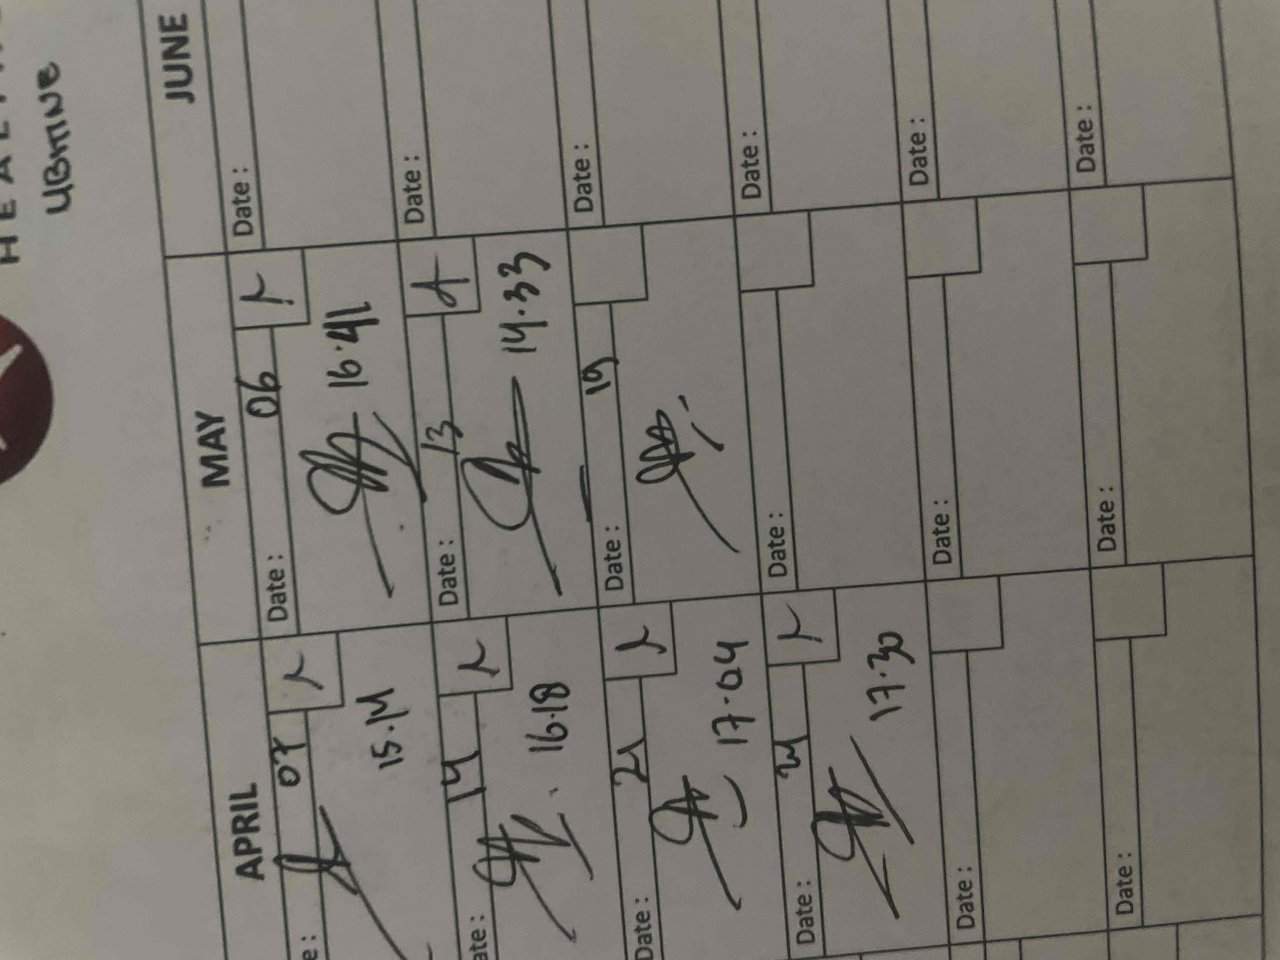 UBMINE
APRIL MAY JUNE
07 Date : 06 Date :
15.14 16.41
14 Date : 13 Date :
16.18 14.33
Date : 21 Date : 19 Date :
17.04
Date : Date : Date :
17.30
Date : Date : Date :
Date : Date : Date :